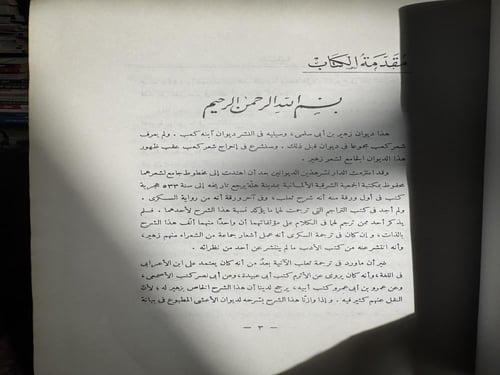 مقدمة الكتاب
بسم الله الرحمن الرحيم
هذا ديوان زهير بن أبى سلمى، وسيليه فى النشر ديوان آبنه كعب. ولم يعرف
شعر كعب مجموعا فى ديوان قبل ذلك. وسنشرع فى إخراج شعر كعب عقب ظهور
هذا الديوان الجامع لشعر زهير.
وقد اعتزمت الدار نشر هذين الديوانين بعد أن اهتدت إلى مخطوط جامع لشعرهما
محفوظ بمكتبة الجمعية الشرقية الألمانية بمدينة هلّة يرجع تاريخه إلى سنة ٥٣٣ هجرية
كتب فى أول ورقة منه أنه شرح ثعلب، وفى آخر ورقة أنه من رواية السكرى.
ولم أجد فى كتب التراجم التى ترجمت لهما ما يؤكد نسبة هذا الشرح لأحدهما. فلم
يذكر أحد ممن ترجم لهما فى الكلام على مؤلفاتهما أن واحدا منهما ألف هذا الشرح
بالذات، وإن كان فى ترجمة السكرى أنه عمل أشعار جماعة من الشعراء منهم زهير،
وأنه انتشر عنه من كتب الأدب ما لم ينتشر عن أحد من نظرائه.
غير أن ماورد فى ترجمة ثعلب الآتية بعدُ من أنه كان يعتمد على ابن الأعرابى
فى اللغة، وأنه كان يروى عن الأثرم كتب أبى عبيدة، وعن أبى نصر كتب الأصمعى،
وعن عمرو بن أبى عمرو كتب أبيه، يرجح لدينا أن هذا الشرح الخاص بزهير له، لأنّ
النقل عنهم كثير فيه. وإذا وازنّا هذا الشرح بشرحه لديوان الأعشى المطبوع فى بيانة
— ٣ —